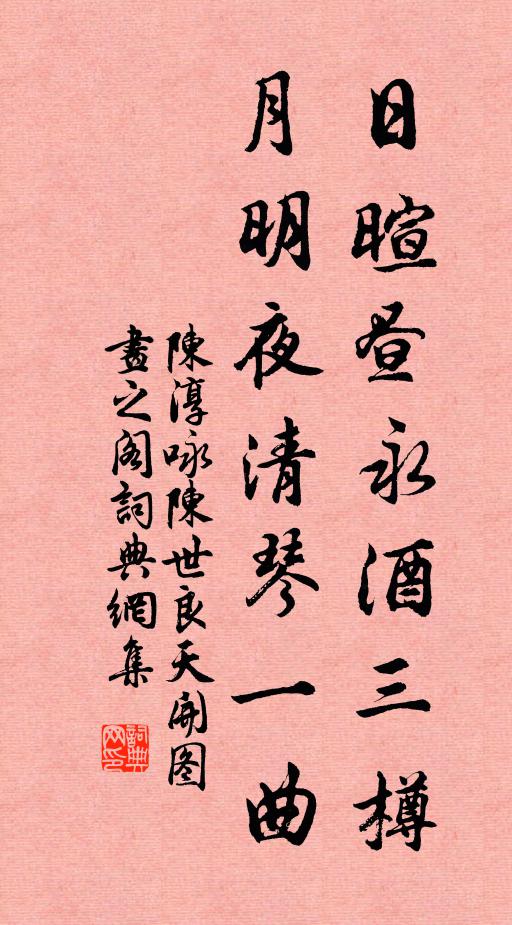 日暄昼永酒三樽
月明夜清琴一曲
陳淳咏陳世良天開图
畫之阁詞典網集
詞典
网印